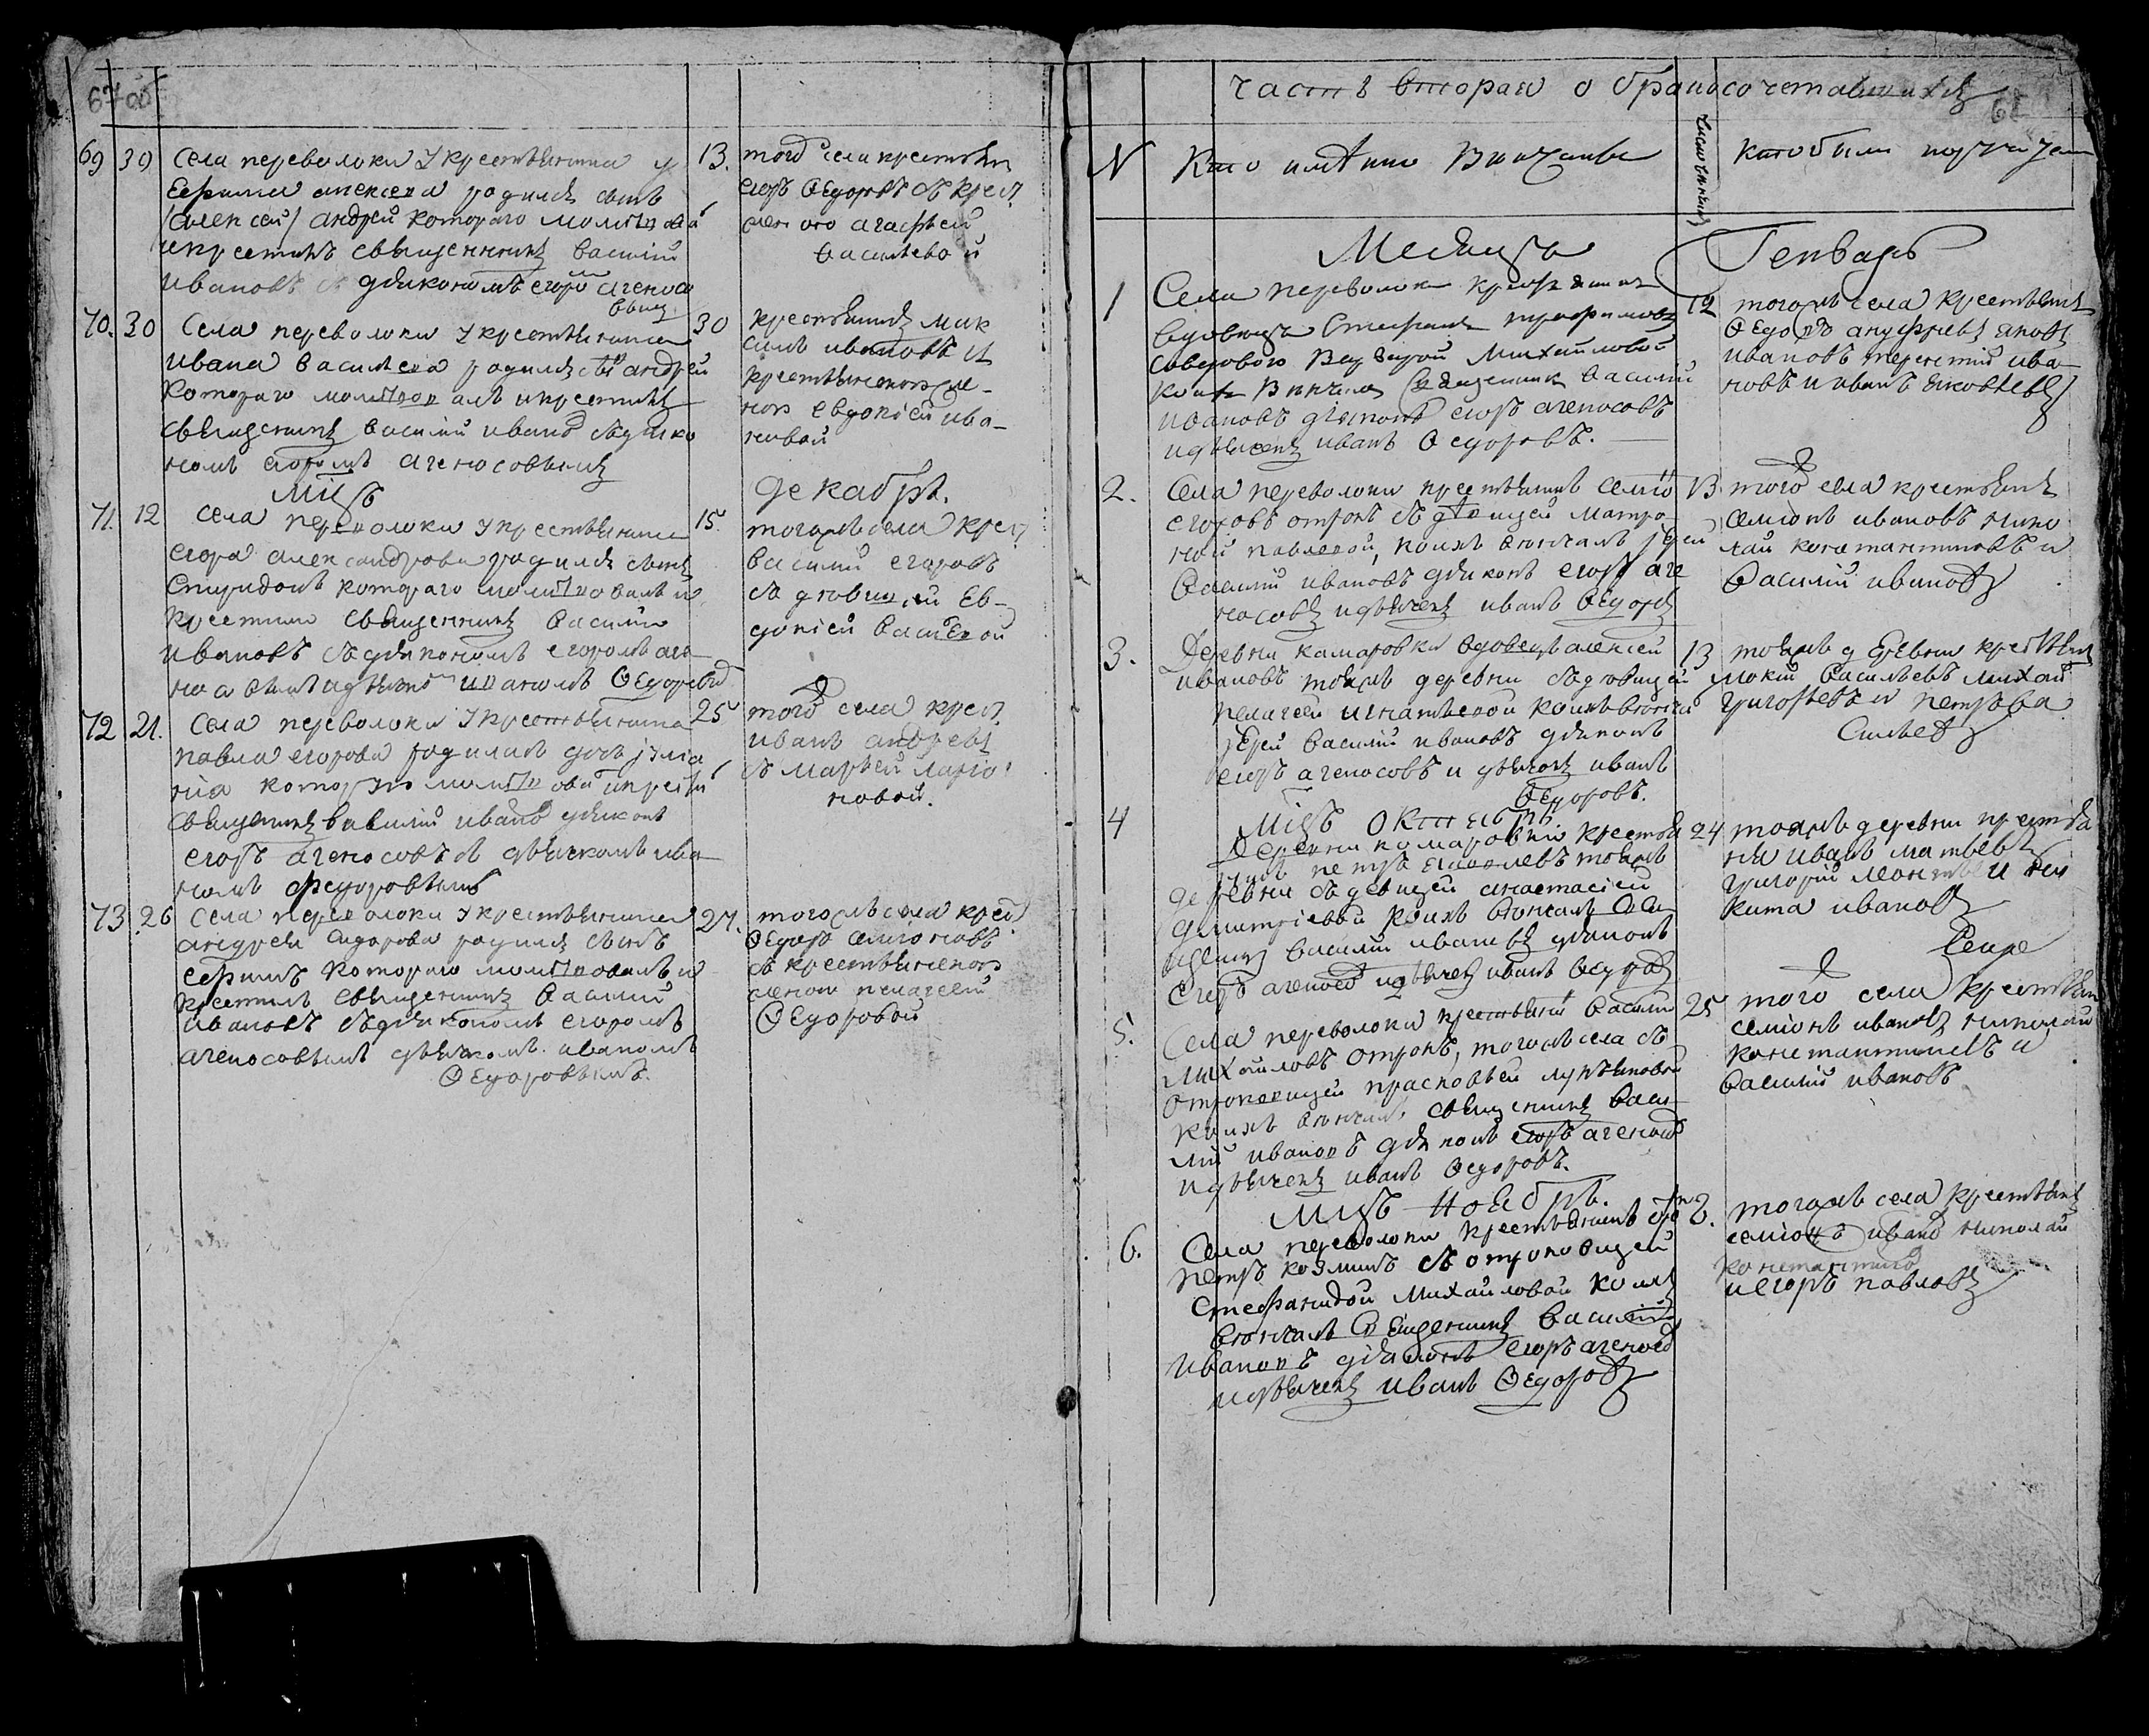 67 об
69 30 Села переволоки у крестьянина
Ефрима алексеева родился сынъ
(алексей) андрей котораго молитвова
и крестилъ священникъ василий
ивановъ съ дьякономъ егоромъ агеносо
вым
13. того села крестьян
егоръ Ѳедоровъ съ крест
женою агафьей
васильевой
70. 30 Села переволоки у крестьянина
ивана василева родился сынъ андрей
котораго молитвовалъ и крестилъ
священникъ василий ивановъ съ дьяко
номъ егоромъ агеносовымъ
30 крестьянинъ мак
симъ ивановъ и
крестьянскою же-
ною евдокией ива-
новой
Мцъ декабрь.
71. 12 Села переволоки у крестьянина
егора александрова родился сынъ
спиридонъ котораго молитвовалъ и
крестилъ священникъ василий
ивановъ съ дьякономъ егоромъ аге
носовымъ и дьячкомъ иваномъ Ѳедоровы
15. тогожъ села крес
василий егоровъ
съ девицей ев-
докией васильевой
72 21. Села переволоки у крестьянина
павла егорова родилась дочь јулиа
ниа которую молитвова и крести
священникъ василий иванов дьяконъ
егоръ агеносовъ съ дьячкомъ ива
номъ федоровымъ
25 того села крест
иванъ андреевъ
съ марьей ларио
новой.
73. 26 Села переволоки у крестьянина
андрея сидорова родился сынъ
ефимъ котораго молитвовалъ и
крестилъ священникъ василий
ивановъ съ дьякономъ егоромъ
агеносовымъ дьячкомъ иваномъ
Ѳедоровымъ.
27. тогожъ села крес
Ѳедоръ семионовъ
съ крестьянскою
женою пелагеей
Ѳедоровой
часть вторая о бракосочетавшихся
68
N Кто имянно венчаны
число венчания
кто были поручатели
Месяцъ Генварь
1 Села переволоки крестьянинъ
вдовецъ Стефанъ трофимовъ
съ вдовою Михайловой
коихъ венчалъ священникъ василий
ивановъ дьяконъ егоръ агеносовъ
и дьячекъ иванъ Ѳедоровъ.
12 тогожъ села крестьянинъ
Ѳедоръ ануфриевъ яковъ
ивановъ терентий ива
новъ и иванъ яковлевъ
2. Села переволоки крестьянинъ семио
егоровъ отрокъ съ девицей матро
ной павлевой, коихъ венчалъ јерей
василий ивановъ дьяконъ егоръ аге
носовъ и дьячекъ иванъ Ѳедоръ
13 того села крестьянинъ
семионъ ивановъ нико
лай константиновъ и
василий ивановъ
3. Деревни камаровки вдовецъ алексей
ивановъ тояжъ деревни съ девицей
пелагеей игнатьевой коихъ венча
јерей василий ивановъ дьяконъ
егоръ агеносовъ и дьячекъ иванъ
Ѳедоровъ.
13 тояжъ деревни крестьян
мокий васильевъ михай
григорьевъ и петръ ва
сильевъ
Мцъ Октябрь
4 Деревни комаровки крестья
нинъ петръ яковлевъ тояжъ
деревни съ девицей анастасией
дмитриевой коихъ венчалъ свя
щеникъ василий ивановъ дьяконъ
егоръ агеносо и дьячекъ иванъ Ѳедоровъ
24 тояжъ деревни крестья
не иванъ матвевъ
григорий леонтьев и ни
кита ивановъ
5. Села переволоки крестьянинъ василий
михайловъ отрокъ, тогожъ села съ
отроковицей прасковьей лукьяновой
коихъ венчалъ священникъ васи
лий ивановъ дьяконъ егоръ агеносо
и дьячекъ иванъ Ѳедоровъ.
25 того села крестьян
семионъ ивановъ николай
константиновъ и
василий ивановъ
Мцъ ноябрь.
6. Села переволоки крестьянинъ
петръ козминъ съ отроковицей
стефанидой михайловой коихъ
венчалъ священникъ василий
ивановъ дьяконъ егоръ агеносо
и дьячекъ иванъ Ѳедоровъ
8. тогожъ села крестьянинъ
семионъ иванов николай
константинов
и егоръ павловъ